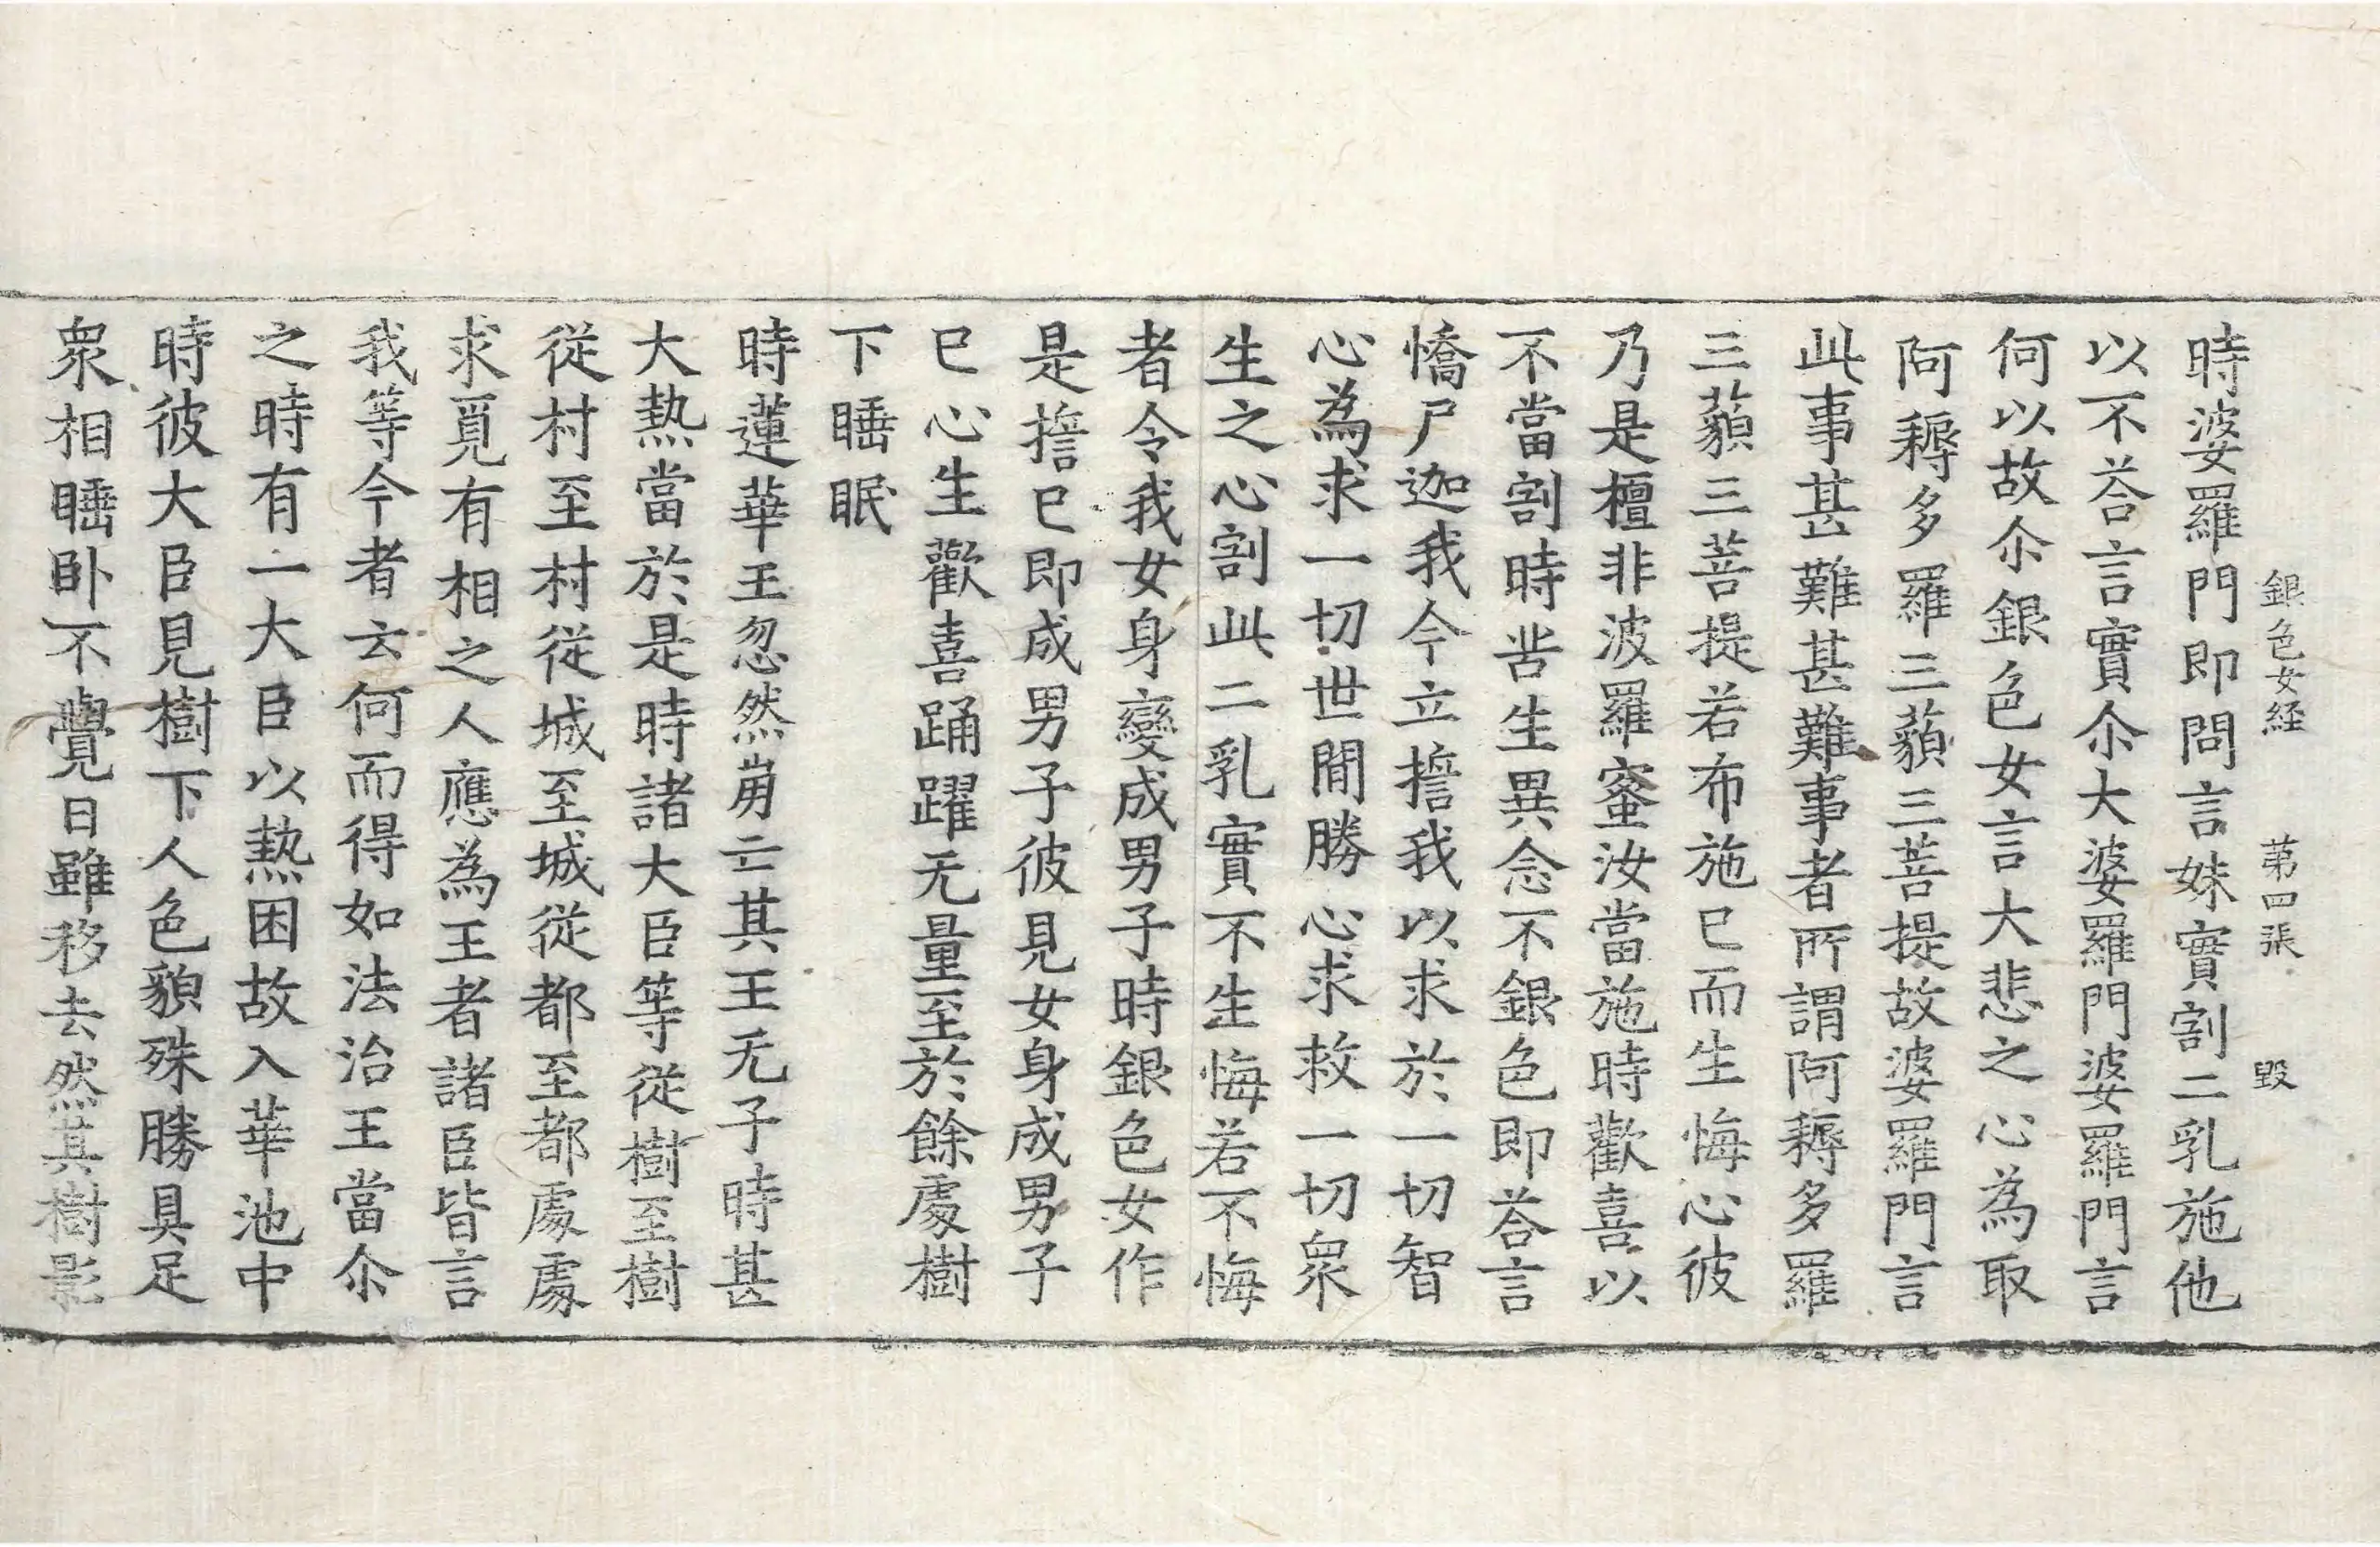 銀色女経 第四張 毀
時婆羅門即問言妹實割二乳施他
以不荅言實尒大婆羅門婆羅門言
何以故尒銀色女言大悲之心為取
阿耨多羅三藐三菩提故婆羅門言
此事甚難甚難事者所謂阿耨多羅
三藐三菩提若布施已而生悔心彼
乃是檀非波羅蜜汝當施時歡喜以
不當割時苦生異念不銀色即荅言
憍尸迦我今立誓我以求於一切智
心為求一切世閒勝心求救一切衆
生之心割此二乳實不生悔若不悔
者令我女身變成男子時銀色女作
是誓已即成男子彼見女身成男子
已心生歡喜踊躍无量至於餘處樹
下睡眠
時蓮華王忽然崩亡其王无子時甚
大熱當於是時諸大臣等從樹至樹
從村至村從城至城從都至都處處
求覓有相之人應為王者諸臣皆言
我等今者云何而得如法治王當尒
之時有一大臣以熱困故入華池中
時彼大臣見樹下人色貌殊勝具足
衆相睡卧不覺日雖移去然其樹影